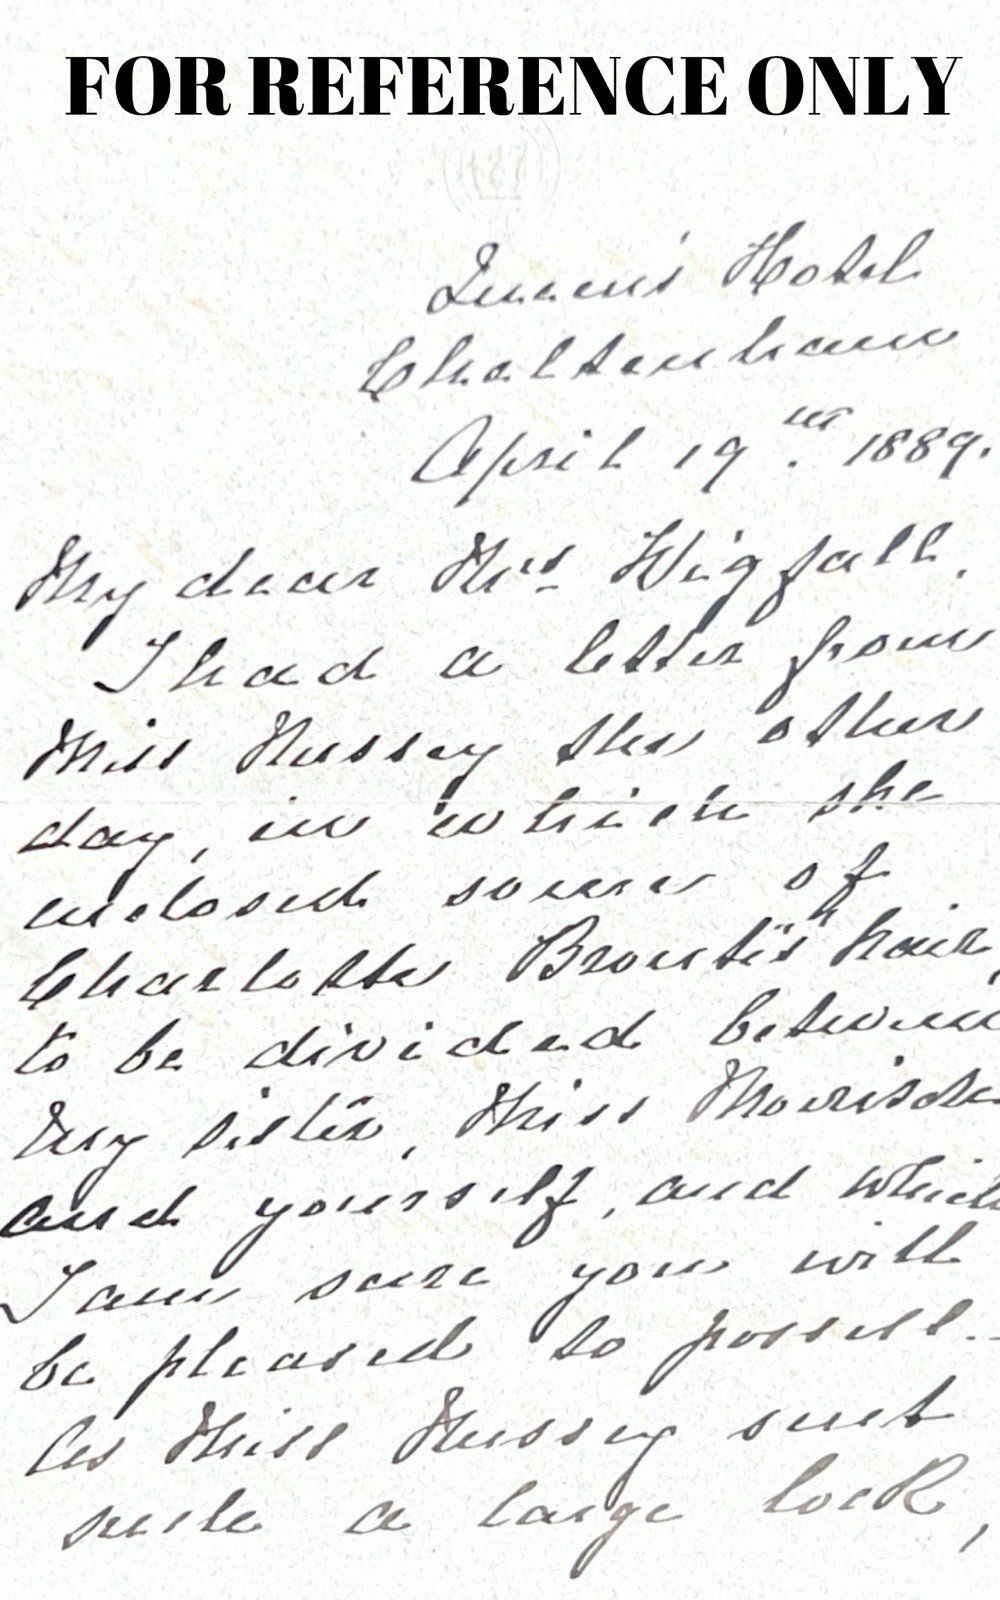 FOR REFERENCE ONLY
Queen's Hotel
Cheltenham
April 19th. 1889.
My dear Mrs Wigfall,
I had a letter from
Miss Nussey the other
day, in which she
enclosed some of
Charlotte Brontë's hair,
to be divided between
my sister, Miss
and yourself, and which
I am sure you will
be pleased to possess.
As Miss Nussey sent
such a large lock,